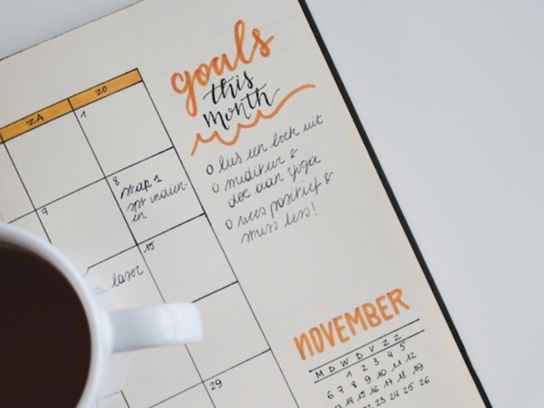 ZA ZO
1
8
9
15
laser
29
goals
this
month
o lees een boek uit
o mediteer &
doe aan yoga
o wees positief &
stress less!
NOVEMBER
M D W D V Z Z
1 2 3 4 5
6 7 8 9 10 11 12
14 15 16 17 18 19
24 25 26